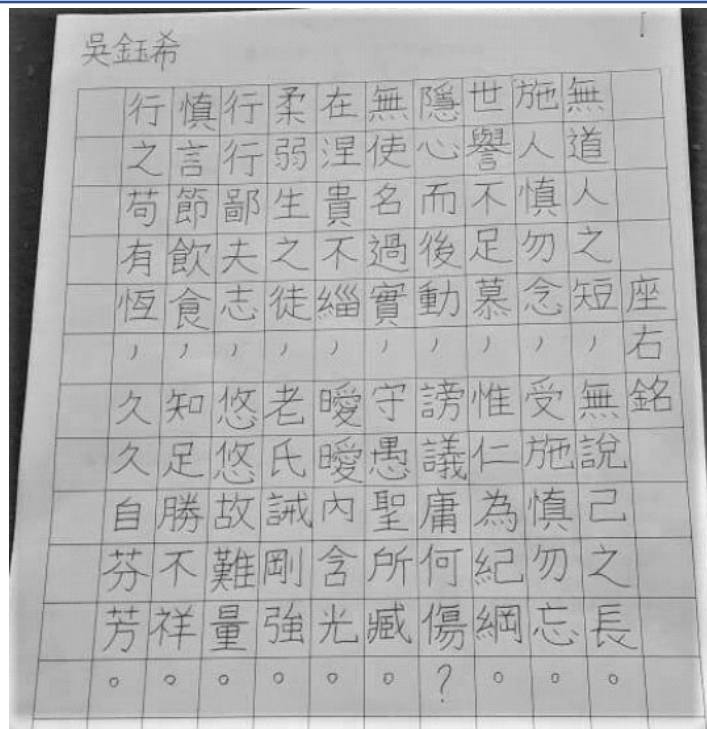 吳鈺希
座右銘
無道人之短，無說己之長。
施人慎勿念，受施慎勿忘。
世譽不足慕，惟仁為紀綱。
隱心而後動，謗議庸何傷？
無使名過實，守愚聖所臧。
在涅貴不緇，曖曖內含光。
柔弱生之徒，老氏誡剛強。
行行鄙夫志，悠悠故難量。
慎言節飲食，知足勝不祥。
行之苟有恆，久久自芬芳。